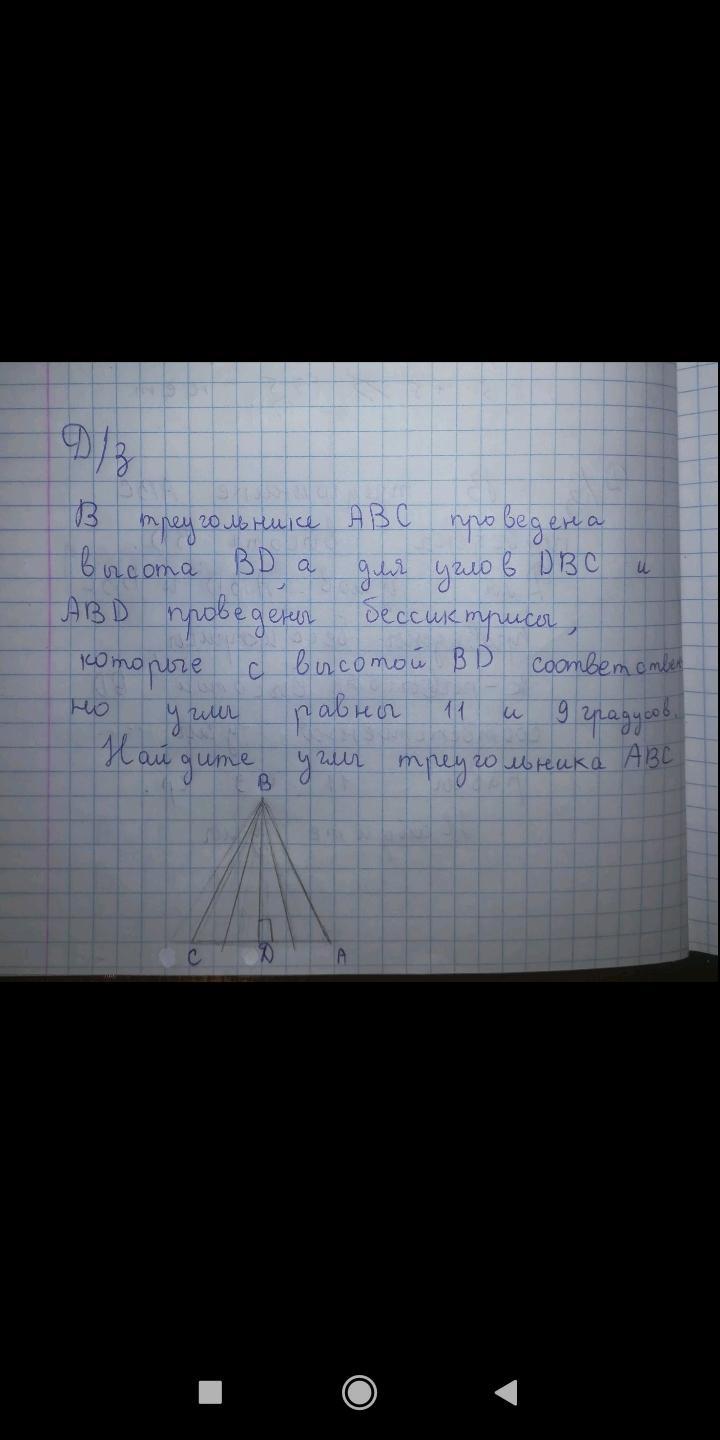 Д/з
В треугольнике ABC проведена
высота BD, а для углов DBC и
ABD проведены бессиктрисы,
которые с высотой BD соответствен
но углы равны 11 и 9 градусов.
Найдите углы треугольника ABC
B
C D A